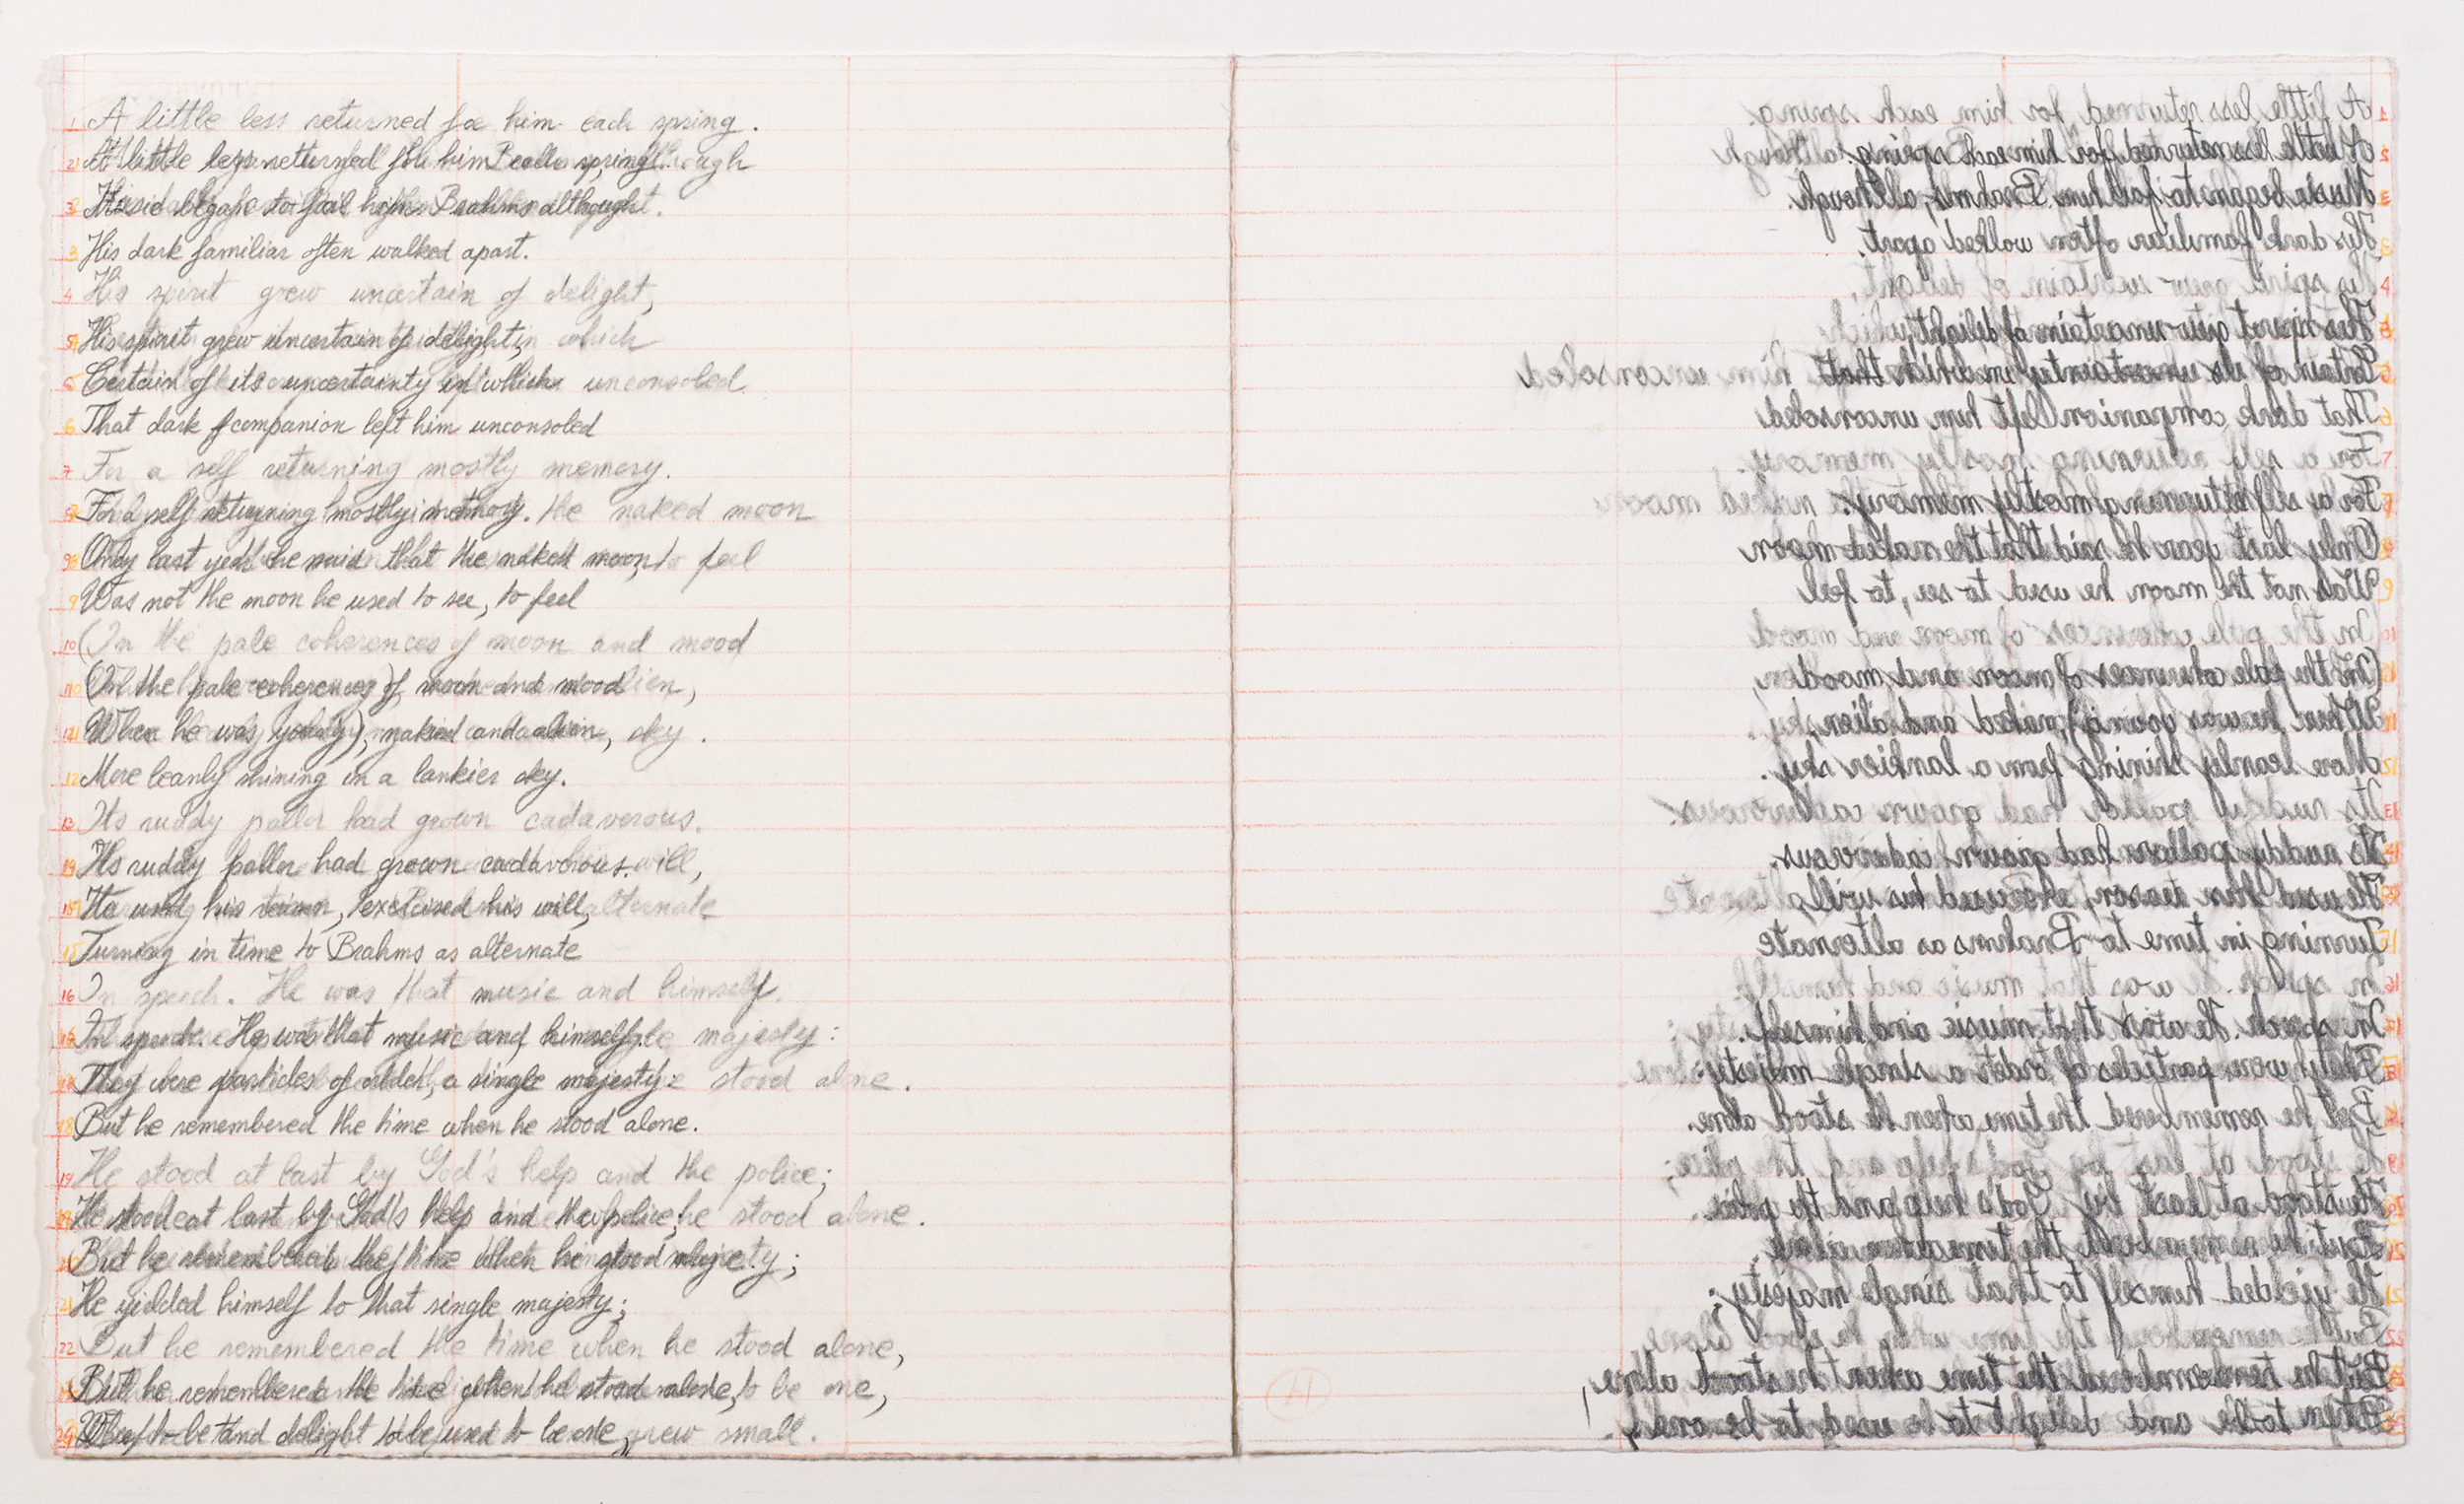 1 A little less returned for him each spring.
2 A little less returned for him each spring. although
3 Music began to fail him. Brahms although
3 His dark familiar often walked apart.
4 His spirit grew uncertain of delight,
5 His spirit grew uncertain of delight, in which
5 Certain of its uncertainty in which unconsoled
6 That dark companion left him unconsoled
7 For a self returning mostly memory.
8 For a self returning mostly memory. the naked moon
Only last year he said that the naked moon to feel
9 Was not the moon he used to see, to feel
10 (In the pale coherences of moon and mood
(In the pale coherences of moon and mood alien,
11 When he was young), naked and alien, sky.
12 More leanly shining in a lankier sky.
13 Its ruddy pallor had grown cadaverous.
14 Its ruddy pallor had grown cadaverous. will,
He used his reason, exercised his will, alternate
15 Turning in time to Brahms as alternate
16 In speech. He was that music and himself.
In speech. He was that music and himself. majesty:
They were particles of order, a single majesty: stood alone.
18 But he remembered the time when he stood alone.
19 He stood at last by God's help and the police;
He stood at last by God's help and the police; he stood alone.
But he remembered the time when he stood majesty;
21 He yielded himself to that single majesty;
22 But he remembered the time when he stood alone,
But he remembered the time when he stood alone, to be one,
When to be and delight to be used to be one, grew small.
1 A little less returned for him each spring.
2 A little less returned for him each spring. although
3 Music began to fail him. Brahms, although.
3 His dark familiar often walked apart.
4 His spirit grew uncertain of delight,
5 His spirit grew uncertain of delight, which
5 Certain of its uncertainty in which that him unconsoled
6 That dark companion left him unconsoled
7 For a self returning mostly memory.
8 For a self returning mostly memory. naked moon
Only last year he said that the naked moon
9 Was not the moon he used to see, to feel
10 In the pale coherences of moon and mood
(In the pale coherences of moon and mood
11 When he was young), naked and alien, sky.
12 More leanly shining from a lankier sky.
13 Its ruddy pallor had grown cadaverous.
14 Its ruddy pallor had grown cadaverous.
He used his reason, exercised his will, alternate
15 Turning in time to Brahms as alternate
16 In speech. He was that music and himself.
In speech. He was that music and himself.
17 They were particles of order a single majesty: alone
But he remembered the time when he stood alone.
19 He stood at last by God's help and the police;
He stood at last by God's help and the police.
But he remembered the time when
21 He yielded himself to that single majesty;
22 But he remembered the time when he stood alone
But he remembered the time when he stood alone,
When to be and delight to be used to be one,
17